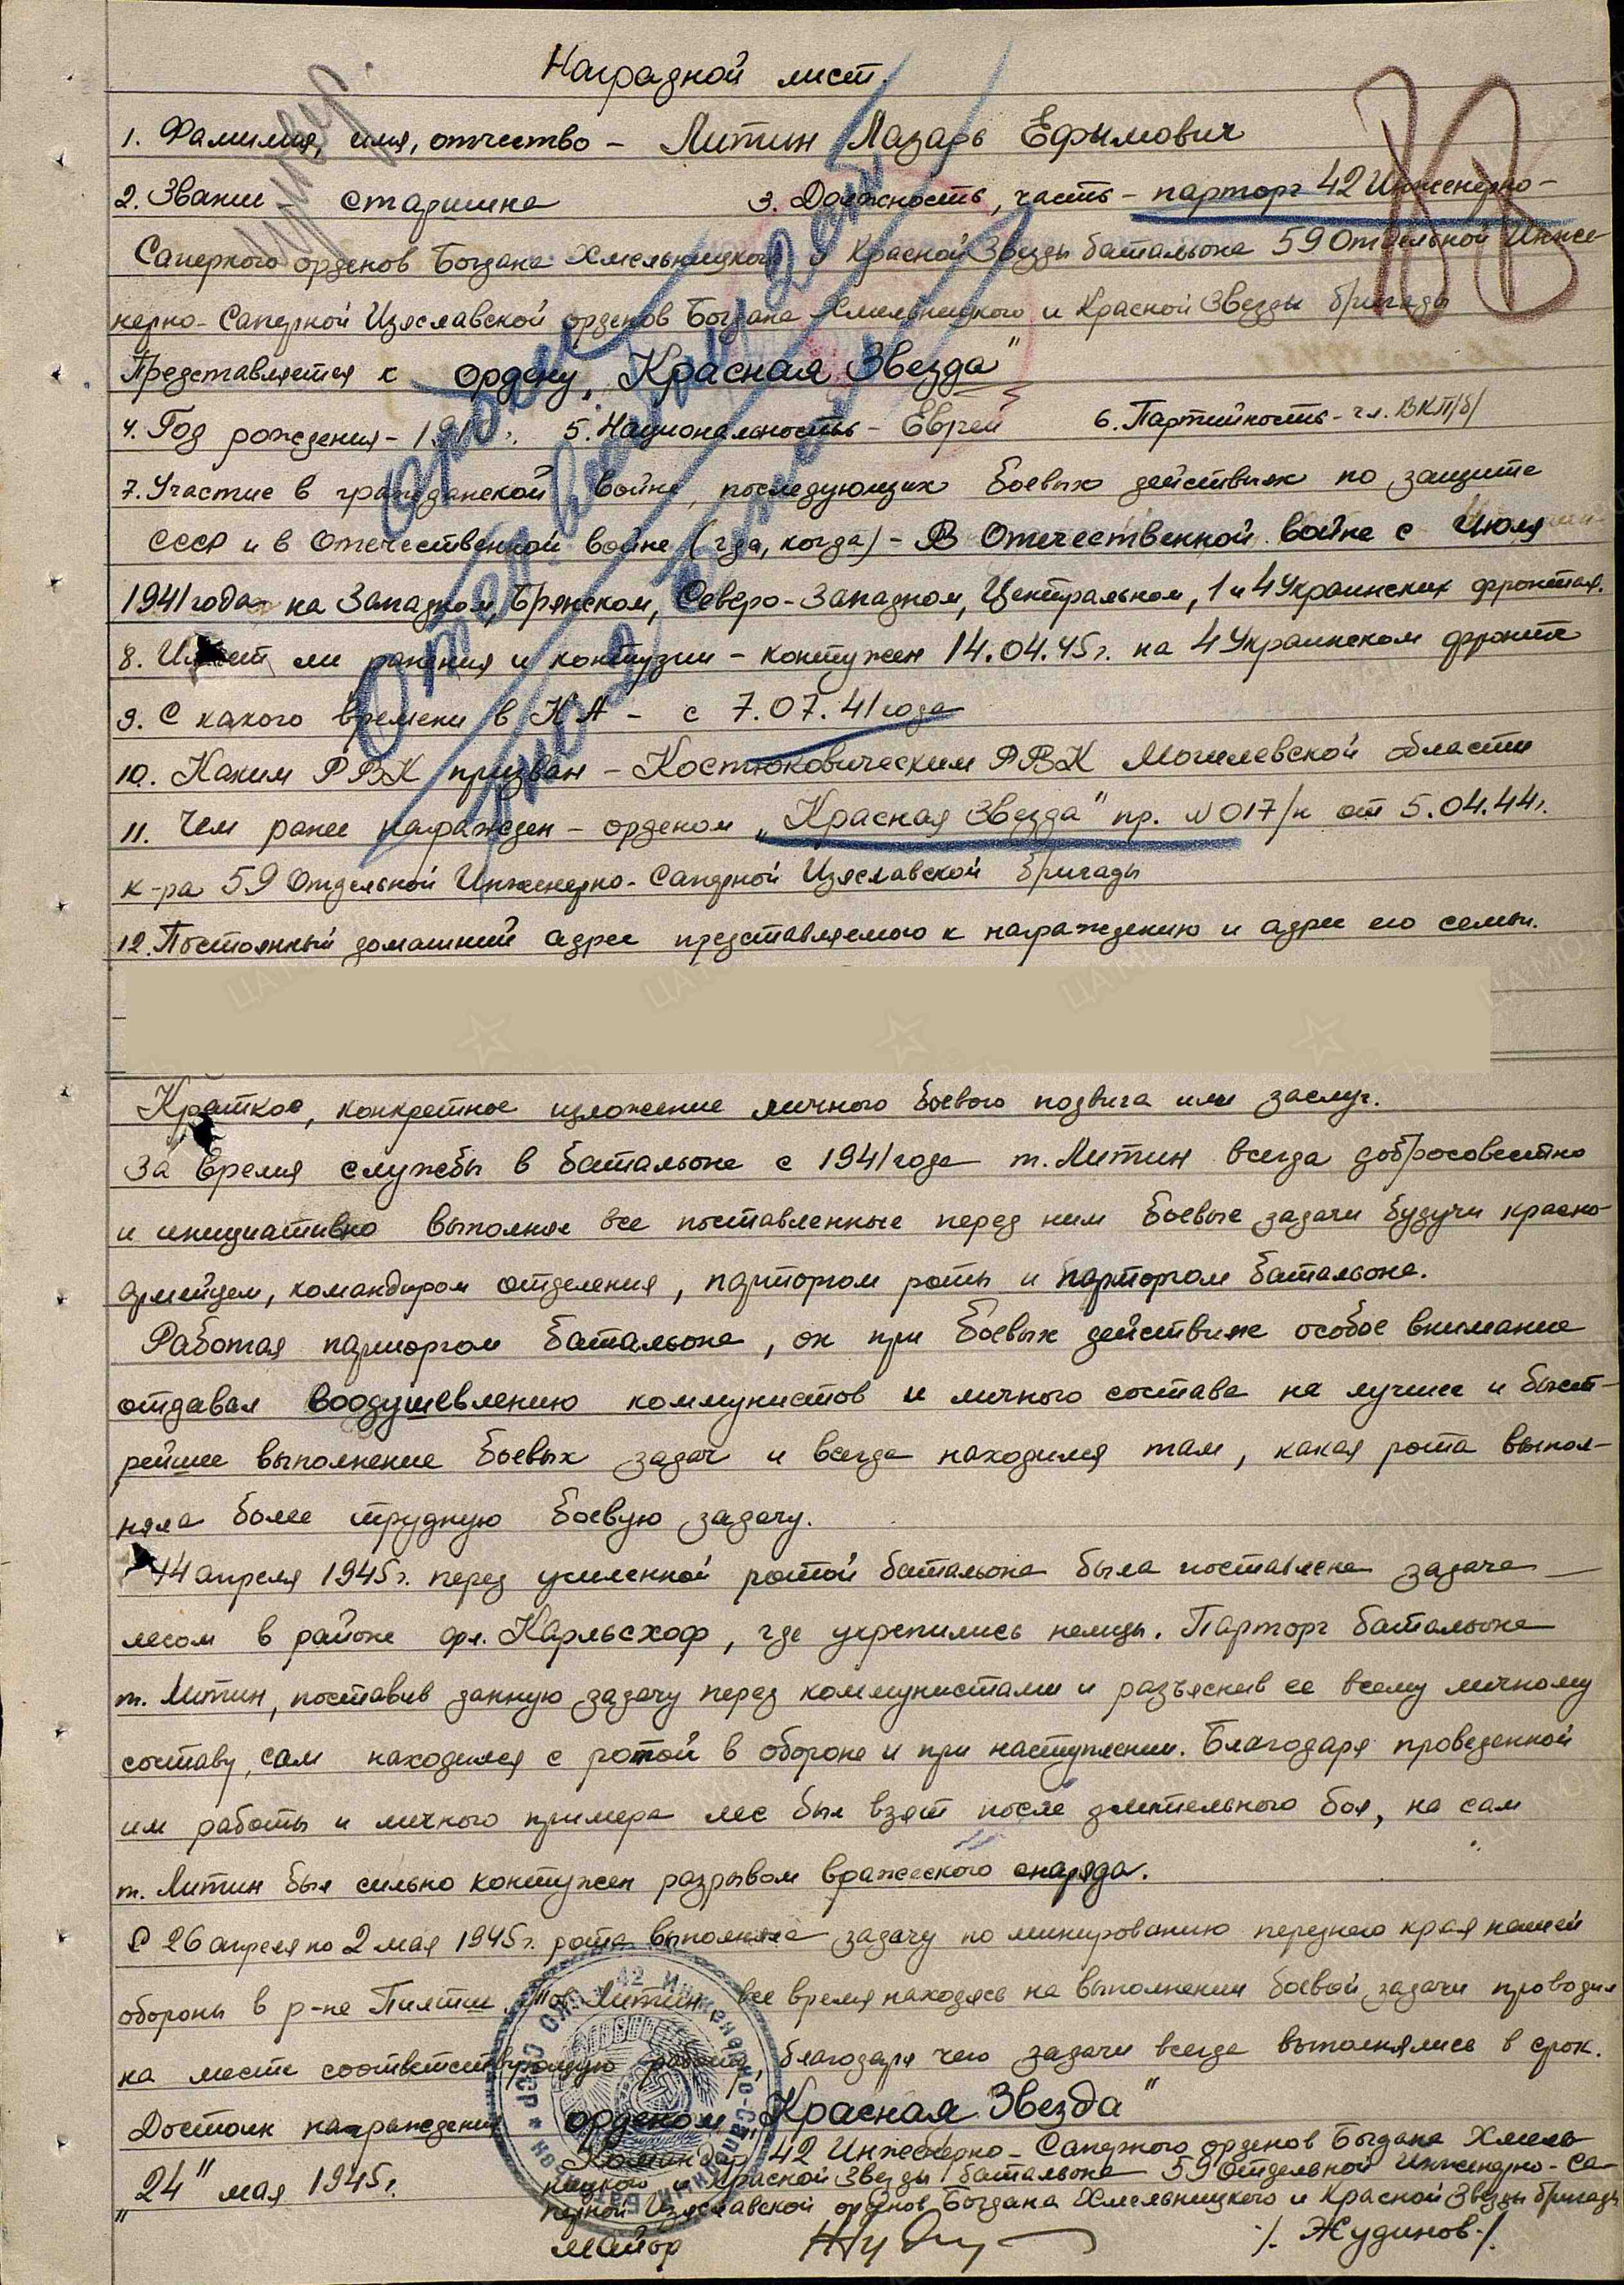 Наградной лист.
1. Фамилия, имя, отчество – Литин Лазарь Ефимович
2. Звание старшина 3. Должность, часть – парторг 42 Инженерно-
Саперного орденов Богдана Хмельницкого и Красной Звезды батальона 59 Отдельной Инже-
нерно-Саперной Изяславской орденов Богдана Хмельницкого и Красной Звезды бригады
Представляется к ордену „Красная Звезда"
4. Год рождения – 5. Национальность – Еврей 6. Партийность – чл. ВКП/б/
7. Участие в гражданской войне, последующих боевых действиях по защите
СССР и в Отечественной войне (где, когда) – В Отечественной войне с Июля
1941 года на Западном, Брянском, Северо-Западном, Центральном, 1 и 4 Украинских фронтах.
8. Имеет ли ранения и контузии – контужен 14.04.45г. на 4 Украинском фронте
9. С какого времени в КА – с 7.07.41 года
10. Каким РВК призван – Костюковическим РВК Могилевской области
11. Чем ранее награжден – орденом „Красная Звезда" пр. №017/н от 5.04.44г.
к-ра 59 Отдельной Инженерно-Саперной Изяславской бригады
12. Постоянный домашний адрес представляемого к награждению и адрес его семьи.
Краткое, конкретное изложение личного боевого подвига или заслуг.
За время службы в батальоне с 1941 года т. Литин всегда добросовестно
и инициативно выполнял все поставленные перед ним боевые задачи будучи красно-
армейцем, командиром отделения, парторгом роты и парторгом батальона.
Работая парторгом батальона, он при боевых действиях особое внимание
отдавал воодушевлению коммунистов и личного состава на лучшее и быст-
рейшее выполнение боевых задач и всегда находился там, какая рота выпол-
няла более трудную боевую задачу.
14 апреля 1945г. перед усиленной ротой батальона была поставлена задача
лесом в районе фл. Карльсхоф, где укрепились немцы. Парторг батальона
т. Литин, поставив данную задачу перед коммунистами и разъяснив ее всему личному
составу, сам находился с ротой в обороне и при наступлении. Благодаря проведенной
им работы и личного примера лес был взят после длительного боя, но сам
т. Литин был сильно контужен разрывом вражеского снаряда.
С 26 апреля по 2 мая 1945г. рота выполняла задачу по минированию переднего края нашей
обороны в р-не Пилтш. Тов. Литин, все время находясь на выполнении боевой задачи проводил
на месте соответствующую работу, благодаря чего задачи всегда выполнялись в срок.
Достоин награждения орденом „Красная Звезда"
Командир 42 Инженерно-Саперного орденов Богдана Хмель-
ницкого и Красной Звезды батальона 59 Отдельной Инженерно-Са-
„24" мая 1945г. перной Изяславской орденов Богдана Хмельницкого и Красной Звезды бригады
майор /. Жудинов./